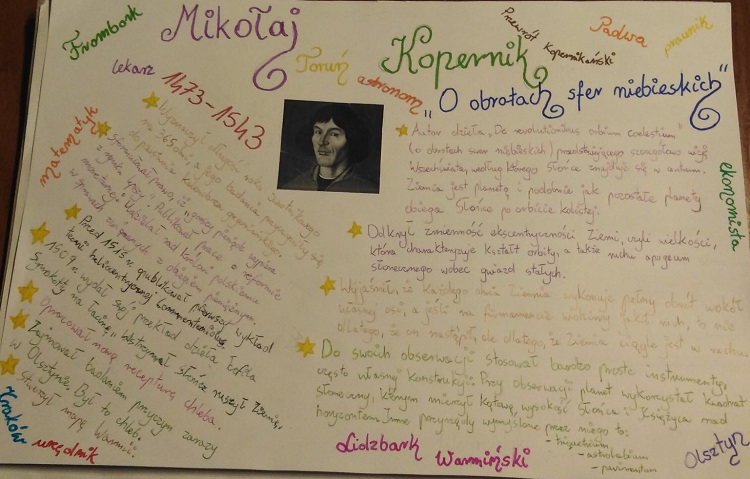 Frombork
Mikołaj
Kopernik
Przewrót Kopernikański
Padwa
prawnik
lekarz
1473-1543
Toruń
astronom
„O obrotach sfer niebieskich"
matematyk
ekonomista
Wyznaczył długość roku zwrotnikowego
na 365 dni, a jego badania przyczyniły się
do powstania kalendarza gregoriańskiego.
Sformułował prawo, że „gorszy pieniądz wypiera
z rynku lepszy". Publikował prace o reformie
monetarnej
w sprawach związanych z obiegiem pieniężnym
Przed 1515 r. opublikował pierwszy wykład
teorii heliocentrycznej Commentariolus
1509 r. wydał swój przekład dzieła Teofila
Symokatty na łacinę „Wstrzymał słońce ruszył Ziemię,
Opracował nową recepturę chleba.
Zajmował badaniem przyczyn zarazy
w Olsztynie. Był to chleb.
Stworzył mapę Warmii.
Kraków
urzędnik
Autor dzieła „De revolutionibus orbium coelestium"
(o obrotach sfer niebieskich) przedstawiającego szczegółowo wizję
Wszechświata, według którego Słońce znajduje się w centrum.
Ziemia jest planetą i podobnie jak pozostałe planety
obiega Słońce po orbicie kołowej.
Odkrył zmienność ekscentryczności Ziemi, czyli wielkości,
która charakteryzuje kształt orbity, a także ruchu apogeum
słonecznego wobec gwiazd stałych.
Wyjaśnił, że każdego dnia Ziemia wykonuje pełny obrót wokół
własnej osi, a jeśli na firmamencie widzimy jakiś ruch, to nie
dlatego, że on nastąpił, ale dlatego, że Ziemia ciągle jest w ruchu.
Do swoich obserwacji stosował bardzo proste instrumenty,
często własnej konstrukcji. Przy obserwacji planet wykorzystał kwadrat
słoneczny, którym mierzył kątową wysokość Słońca i Księżyca nad
horyzontem. Inne przyrządy wymyślone przez niego to:
- triquetrum
- astrolabium
Lidzbark Warmiński
Olsztyn